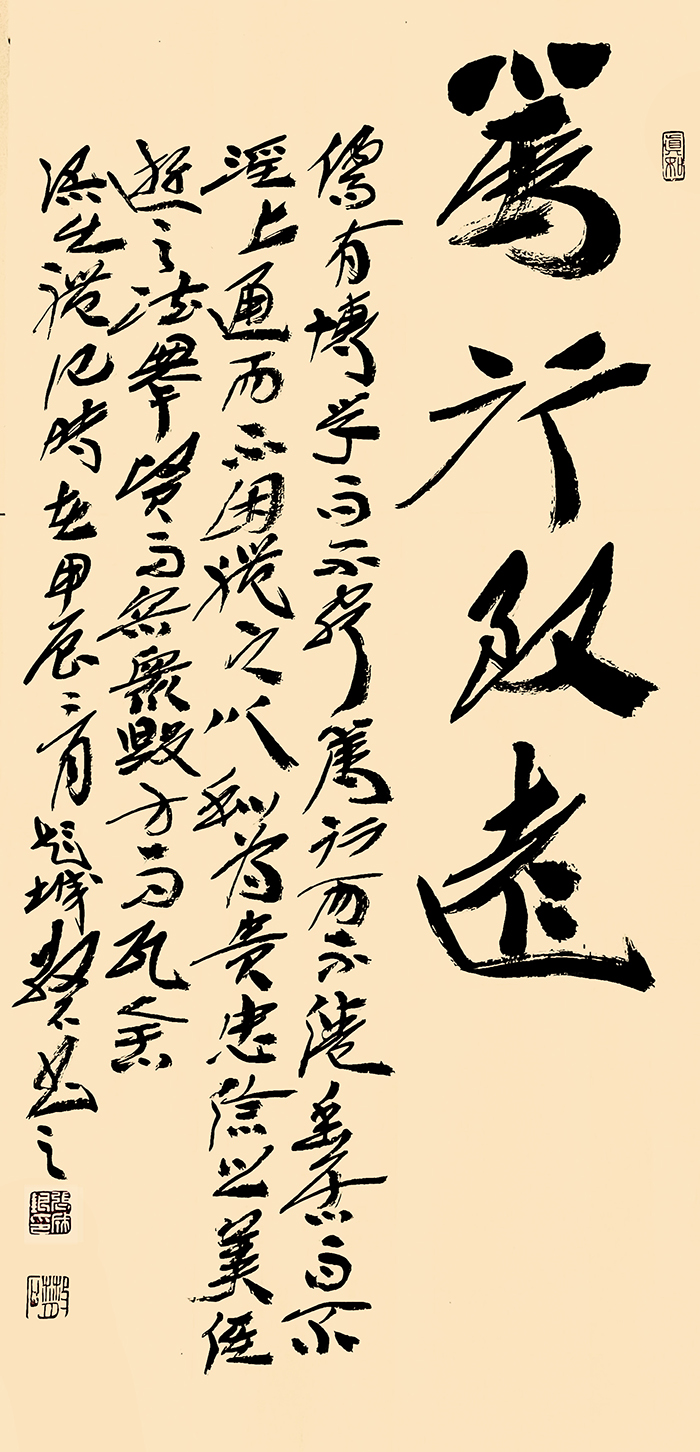 篤行致遠
儒有博学而不窮篤行而不倦幽居而不
淫上通而不困禮之以和為貴忠信之美優
遊之法舉賢而容衆毀方而瓦
源出禮记時在甲辰二月龍城石书之